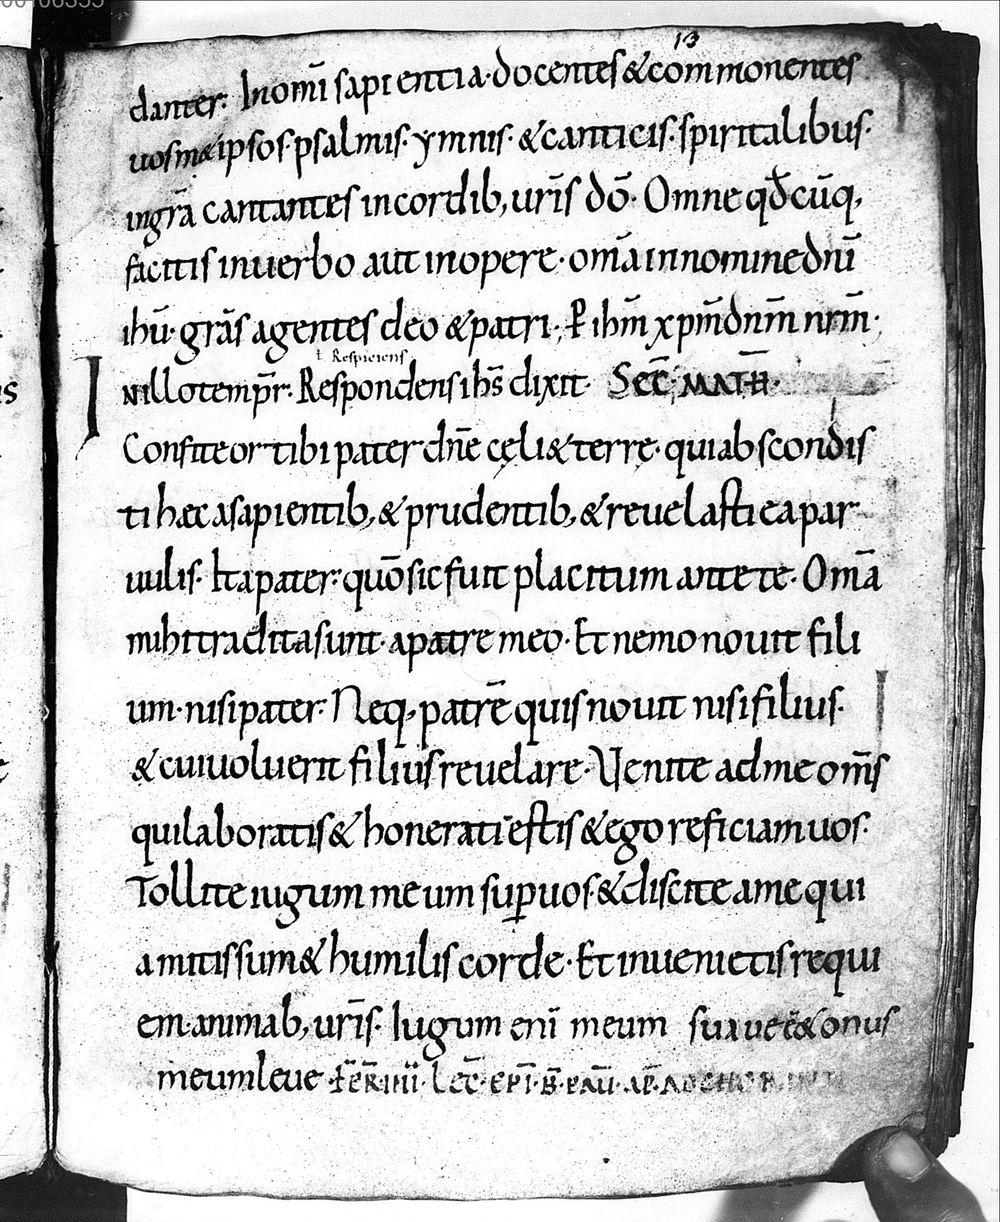 00106355
13
danter. In omī sapientia. docentes & commonentes
uosm&ipsos. psalmis. ymnis. & canticis. spiritalibus.
in grā cantantes in cordib; ur̄is dō. Omne qđcūq;
facitis in uerbo aut in opere. om̄a in nomine dn̄i
ihū. grās agentes deo & patri; P ihm̄ xpm̄ dnm̄ nrm̄.
ł Respiciens
In illo temp̄r. Respondens ihs̄ dixit. Sec̄. MATH̄.
Confiteor tibi pater dn̄e cęli & terrę. quia abscondis
ti hæc a sapientib; & prudentib; & reuelasti ea par
uulis. Ita pater. quō sic fuit placitum ante te. Om̄a
mihi tradita sunt. a patre meo. Et nemo nouit fili
um. nisi pater. Neq; patrē quis nouit nisi filius.
& cui uoluerit filius reuelare. Venite ad me om̄s
qui laboratis & honerati estis & ego reficiam uos.
Tollite iugum meum sup uos. & discite a me qui
a mitis sum & humilis corde. Et inuenietis requi
em animab; ur̄is. Iugum eni̅ meum suaue ē & onus
meum leue. FER̄ IIII. Lec̄. EPI. B. PAU. AP̄. AD CHOR
is